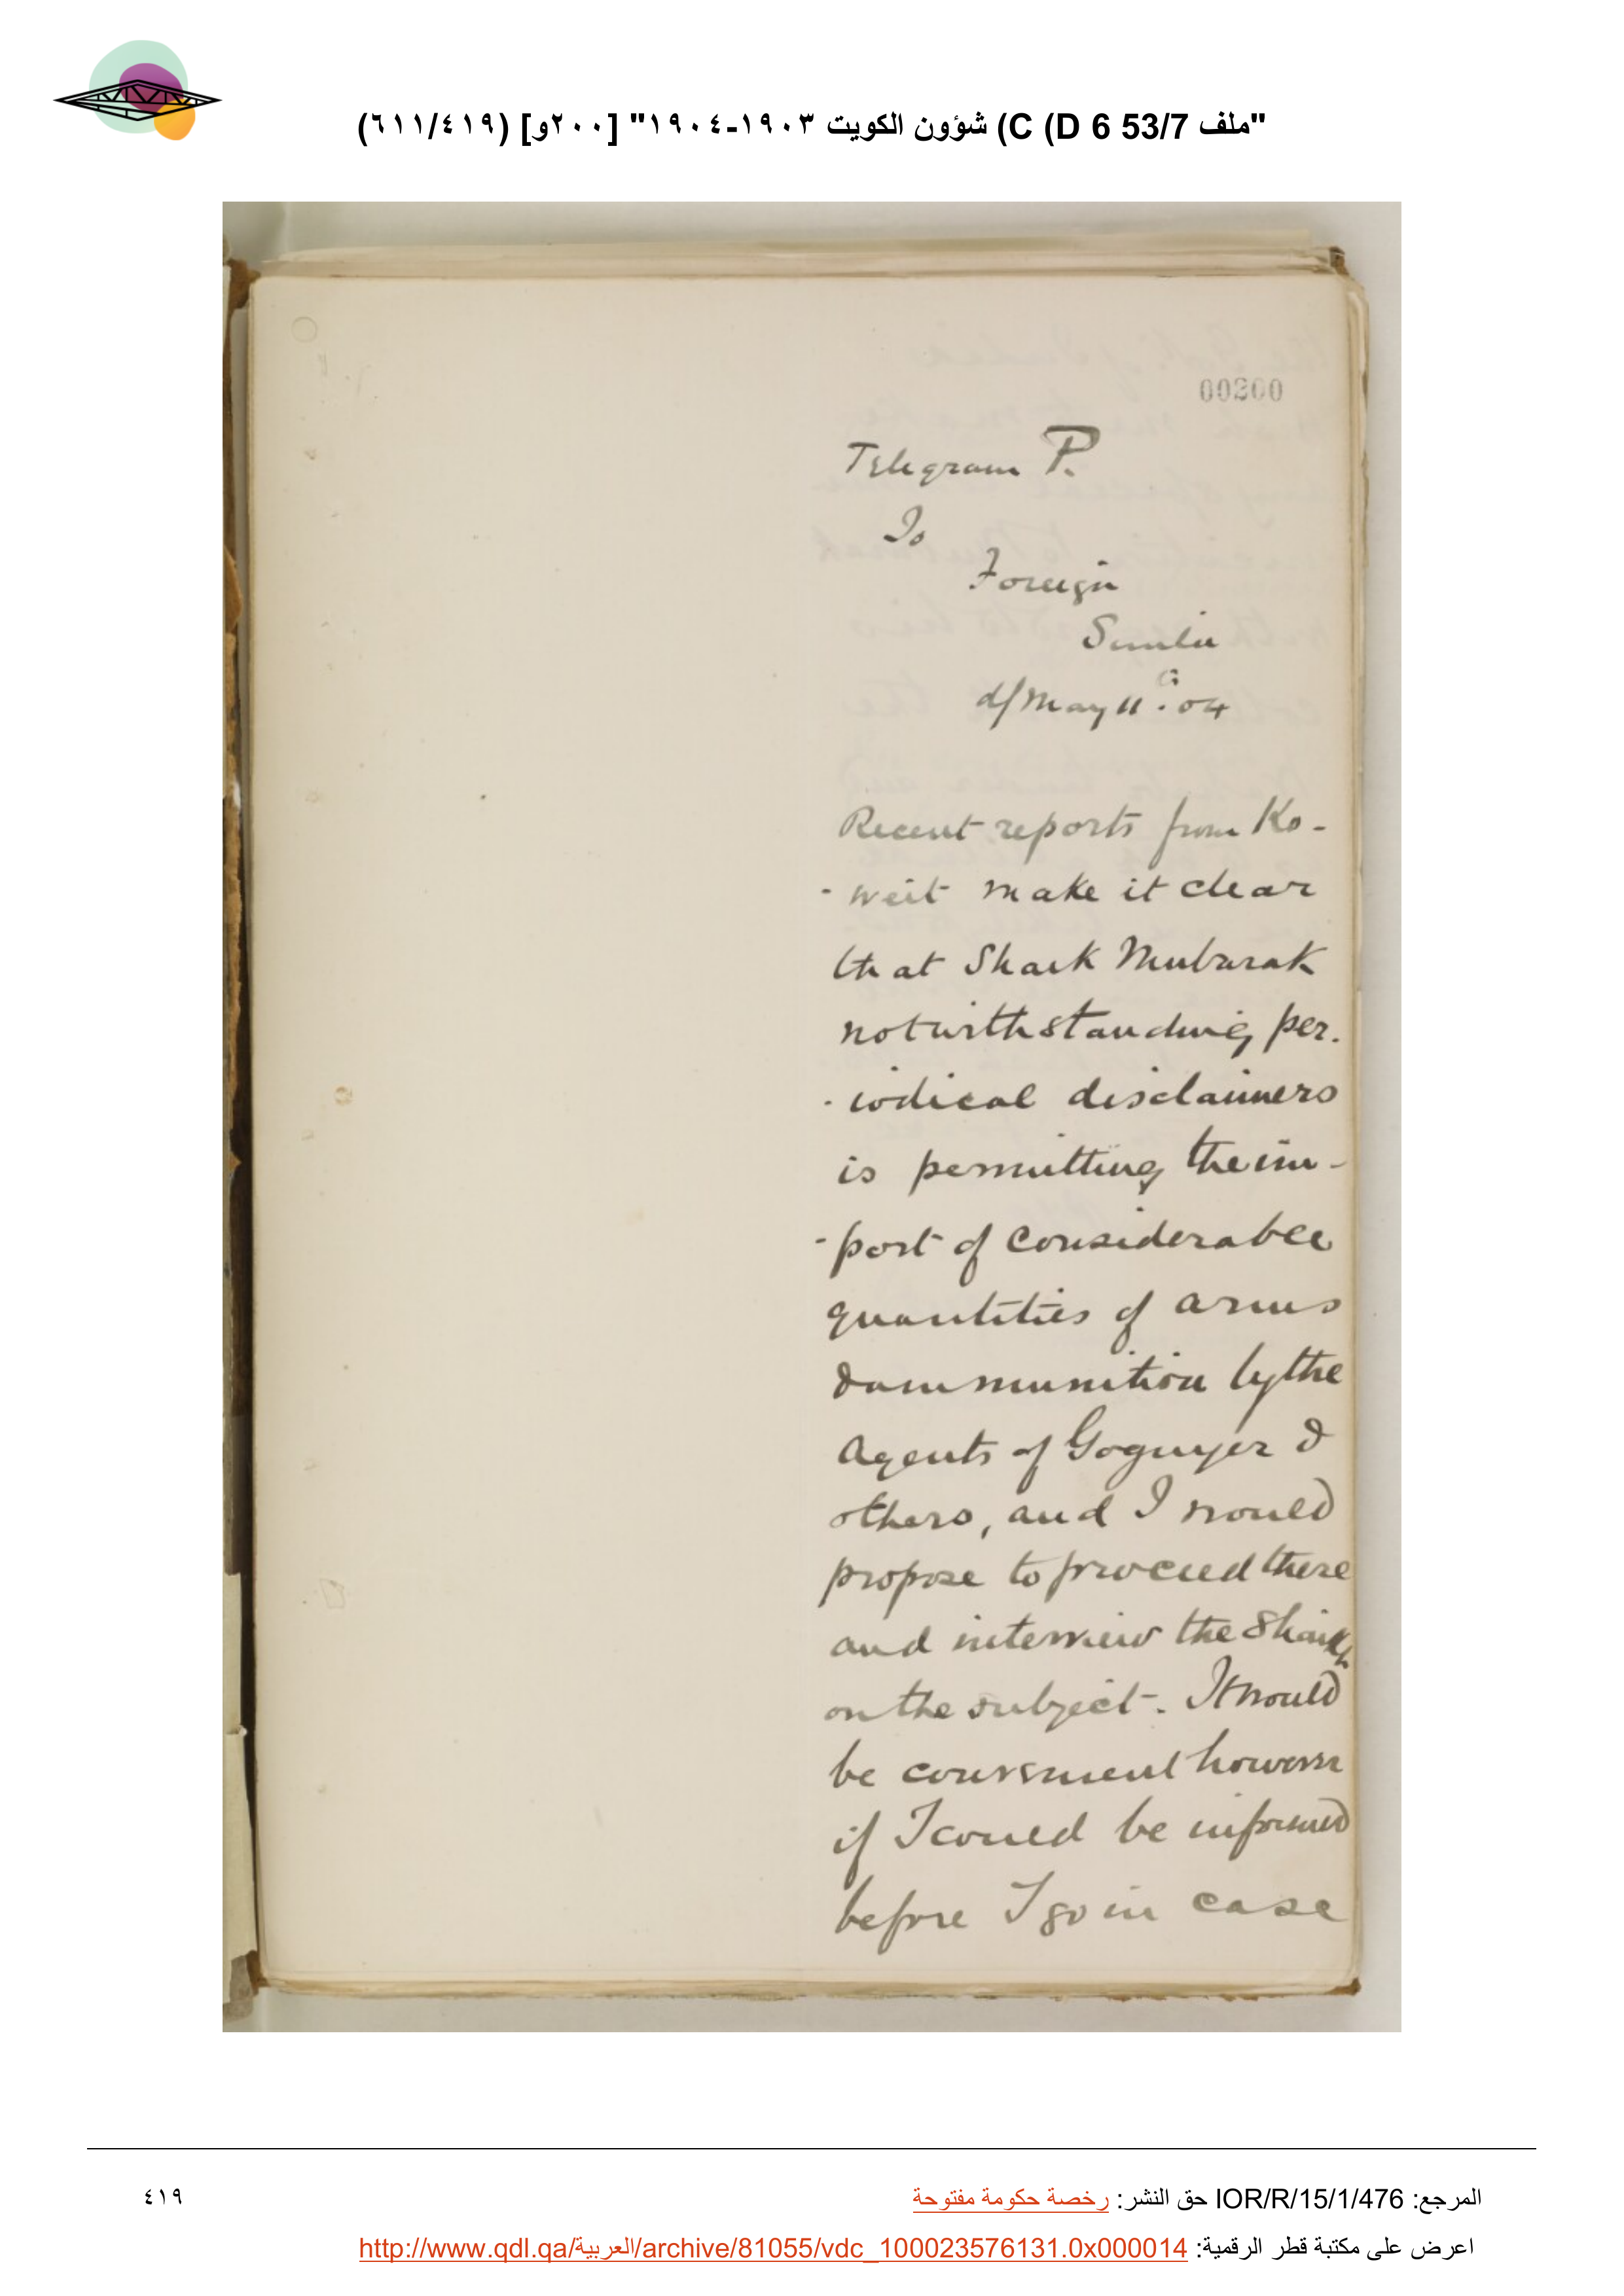 "ملف 53/7 C (D 6) شؤون الكويت ١٩٠٣-١٩٠٤" [٢٠٠و] (٦١١/٤١٩)
00200
Telegram P.
To
Foreign
Simla
d/ May 11th. 04
Recent reports from Ko-
-weit make it clear
that Shaik Mubarak
notwithstanding per.
.iodical disclaimers
is permitting the im-
-port of considerable
quantities of arms
& ammunition by the
Agents of Goguyer &
others, and I would
propose to proceed there
and interview the Shaikh
on the subject. It would
be convenient however
if I could be informed
before I go in case
المرجع: IOR/R/15/1/476 حق النشر: رخصة حكومة مفتوحة
٤١٩
اعرض على مكتبة قطر الرقمية: http://www.qdl.qa/العربية/archive/81055/vdc_100023576131.0x000014